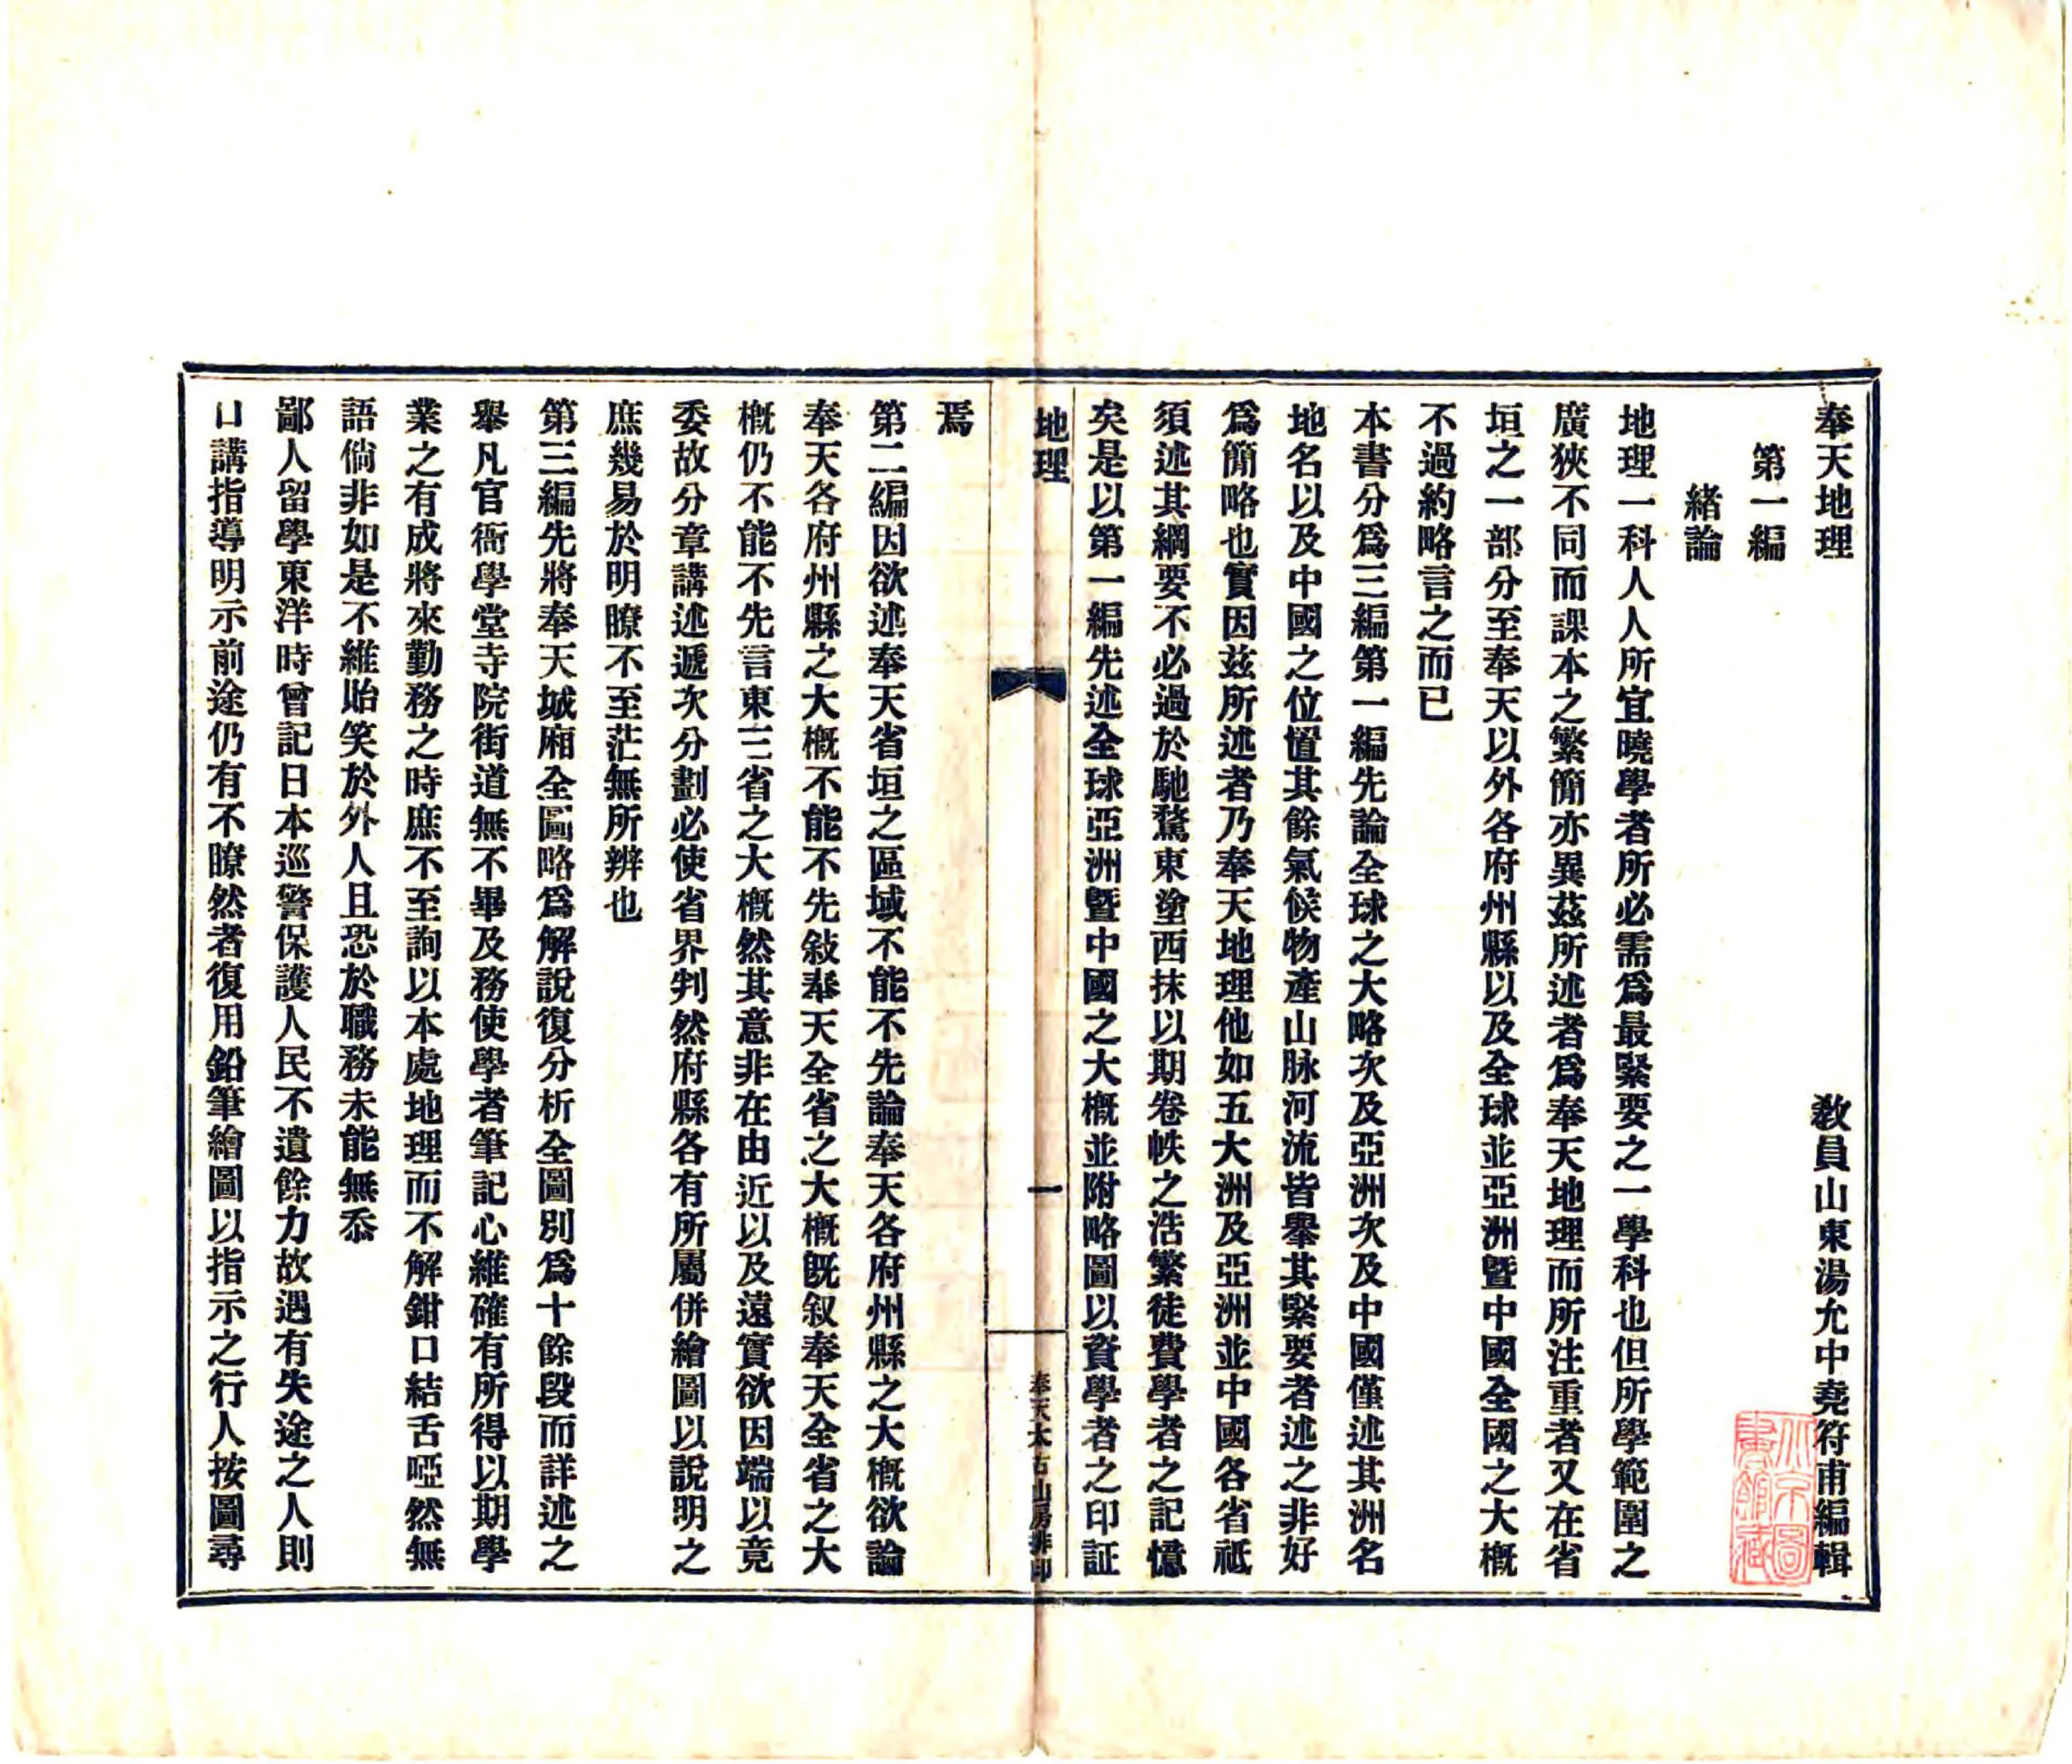 奉天地理
教員山東湯允中堯符甫編輯
第一編
緒論
地理一科人人所宜曉學者所必需爲最緊要之一學科也但所學範圍之
廣狹不同而課本之繁簡亦異茲所述者爲奉天地理而所注重者又在省
垣之一部分至奉天以外各府州縣以及全球並亞洲暨中國全國之大概
不過約略言之而已
本書分爲三編第一編先論全球之大略次及亞洲次及中國僅述其洲名
地名以及中國之位置其餘氣候物產山脉河流皆舉其緊要者述之非好
爲簡略也實因茲所述者乃奉天地理他如五大洲及亞洲並中國各省祗
須述其綱要不必過於馳騖東塗西抹以期卷帙之浩繁徒費學者之記憶
矣是以第一編先述全球亞洲暨中國之大概並附略圖以資學者之印証
地理
一
奉天太古山房排印
焉
第二編因欲述奉天省垣之區域不能不先論奉天各府州縣之大概欲論
奉天各府州縣之大概不能不先敍奉天全省之大概旣叙奉天全省之大
概仍不能不先言東三省之大概然其意非在由近以及遠實欲因端以竟
委故分章講述遞次分劃必使省界判然府縣各有所屬併繪圖以說明之
庶幾易於明瞭不至茫無所辨也
第三編先將奉天城廂全圖略爲解說復分析全圖別爲十餘段而詳述之
舉凡官衙學堂寺院街道無不畢及務使學者筆記心維確有所得以期學
業之有成將來勤務之時庶不至詢以本處地理而不解鉗口結舌啞然無
語倘非如是不維貽笑於外人且恐於職務未能無忝
鄙人留學東洋時曾記日本巡警保護人民不遺餘力故遇有失途之人則
口講指導明示前途仍有不瞭然者復用鉛筆繪圖以指示之行人按圖尋
北京圖
書館藏